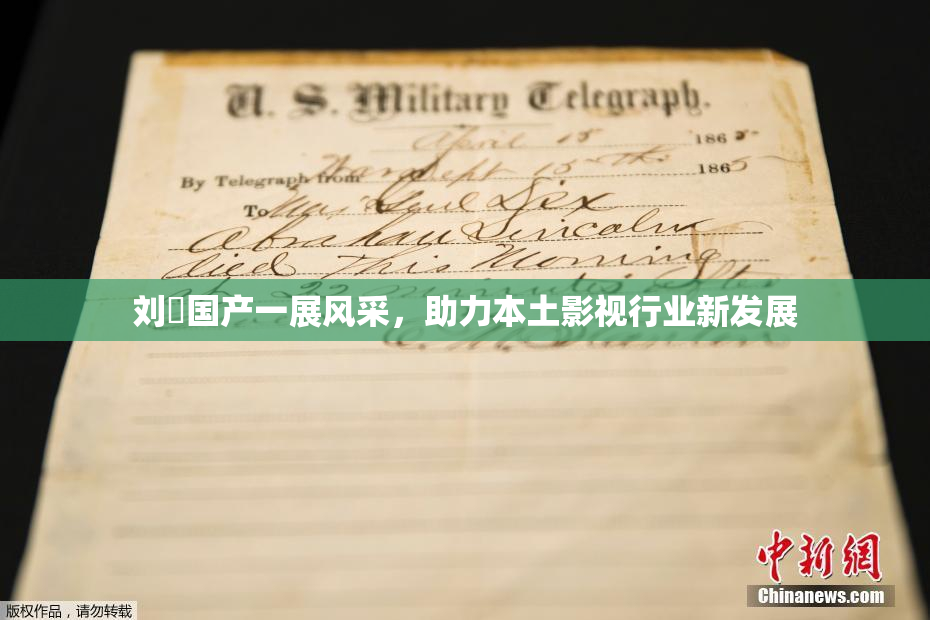 U. S. Military Telegraph.
April 15 1865
By Telegraph from War Dept 15th 1865
To Maj Genl Dix
Abraham Lincoln
died This Morning
at 22 minutes after
刘 国产一展风采，助力本土影视行业新发展
中新网
Chinanews.com
版权作品，请勿转载